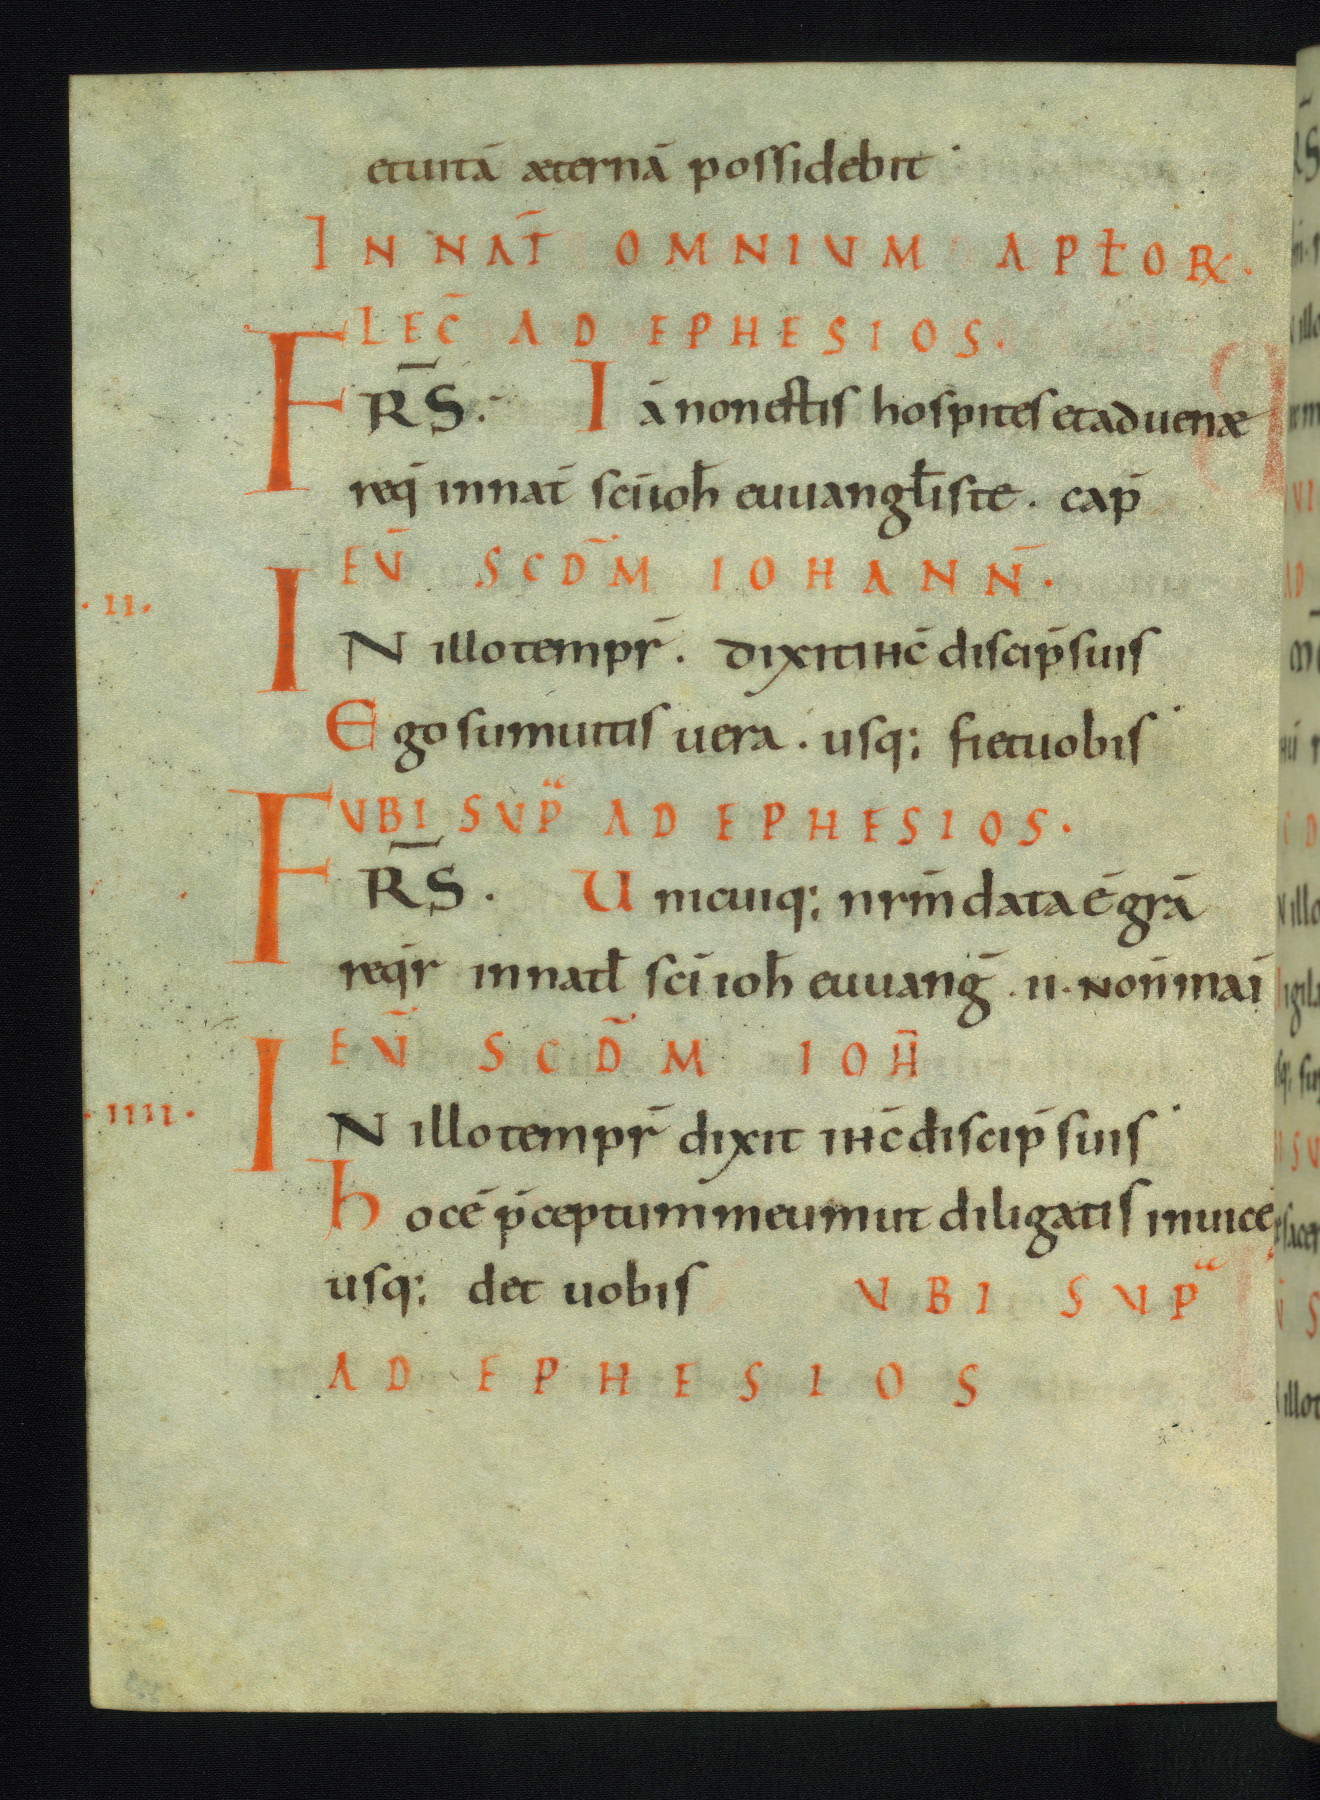 etuitā æternā possidebit·
IN NAT̄ OMNIUM APƚOꝜ.
LEC̄ AD EPHESIOS.
FR̄S. Iā non estis hospites et aduenæ
req̄ in nat̄ sc̄i ioh̄ euuangƚiste. cap̄
EŪ SCD̄M IOHANN̄.
·II.
IN illo tempr̄. dixit ih̄c discip̄ suis
Ego sum uitis uera. usq; fiet uobis·
UBI SUP̈ AD EPHESIOS.
FR̄S. Unicuiq; nrm̄ data ē grā
req̄r in natƚ sc̄i ioh̄ euuanḡ .II. non̄ mai
EŪ SCD̄M IOH̄
·IIII·
IN illo tempr̄ dixit ih̄c discip̄ suis·
hoc ē p̄ceptum meum ut diligatis inuicē
usq; det uobis UBI SUP̈
AD EPHESIOS